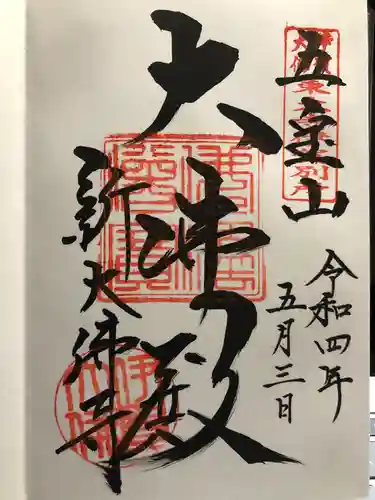 五宝山
大佛殿
新大佛寺
令和四年
五月三日